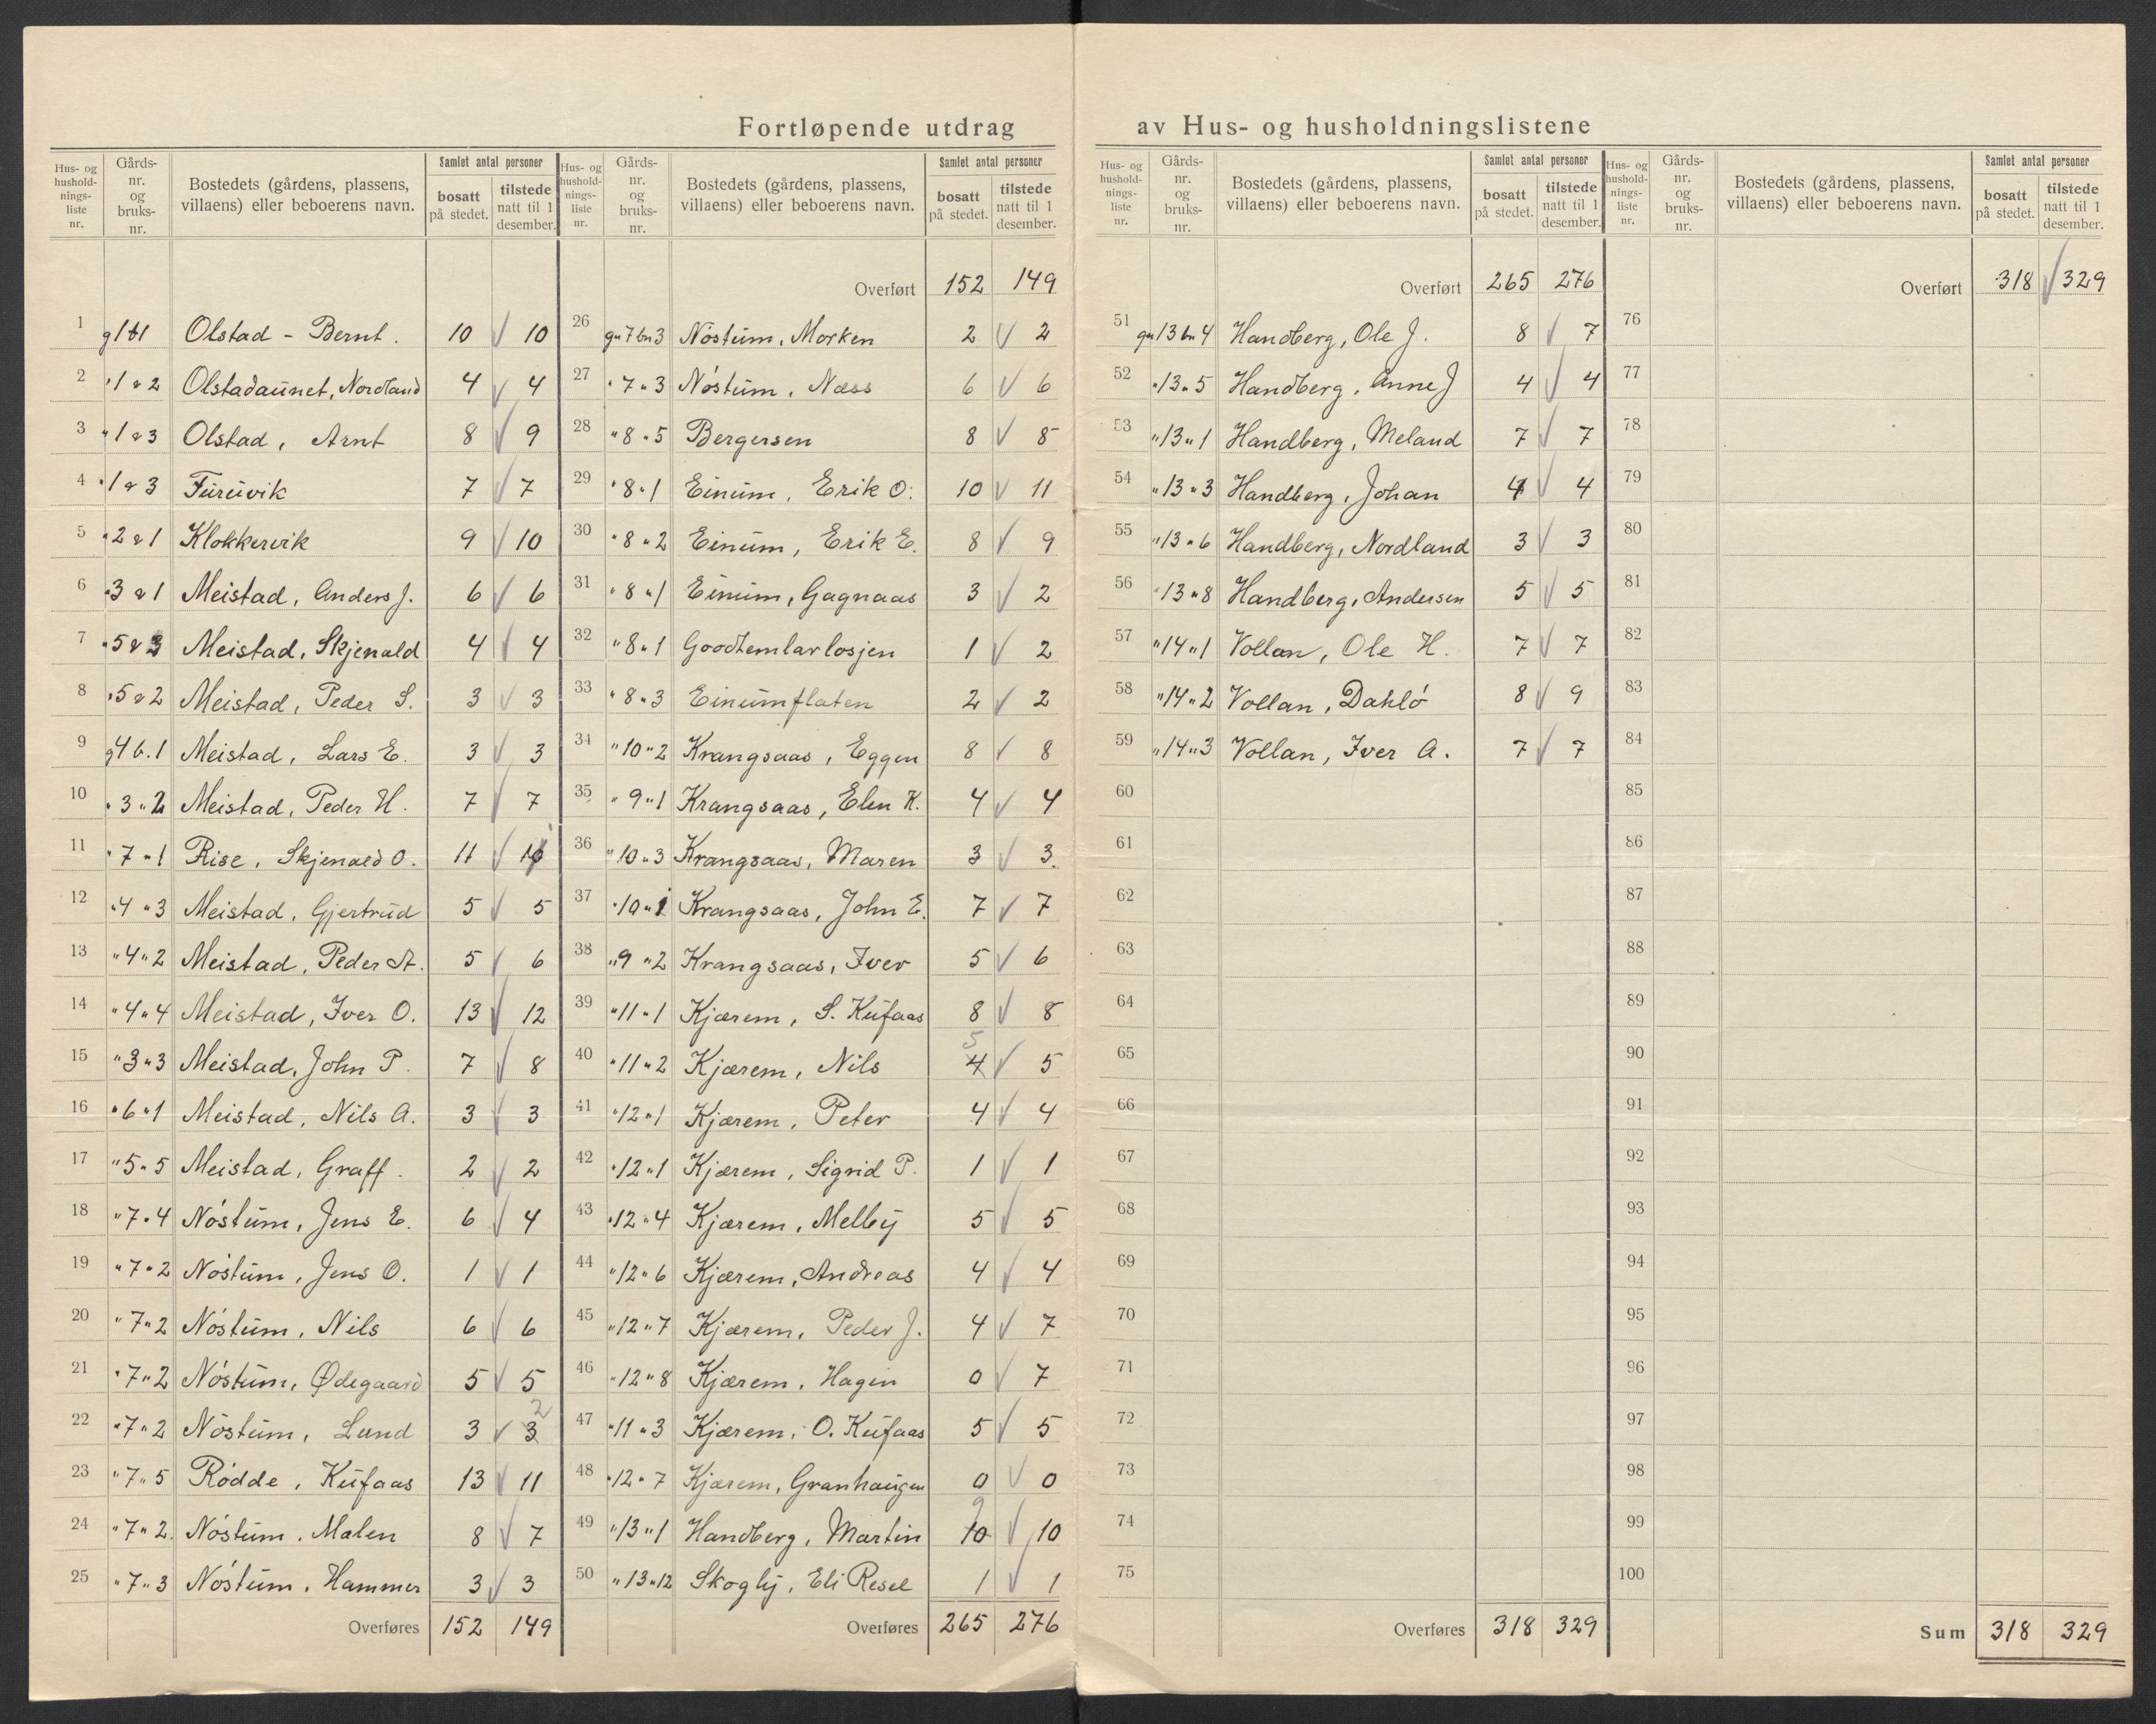 Fortløpende utdrag av Hus- og husholdningslistene
Hus- og husholdnings-liste nr. | Gårds-nr. og bruks-nr. | Bostedets (gårdens, plassens, villaens) eller beboerens navn. | Samlet antal personer | bosatt på stedet. | tilstede natt til 1 desember.
1 g1 b1 Olstad - Bernt. 10 10
2 " 1 " 2 Olstadaunet, Nordland 4 4
3 " 1 " 3 Olstad, Arnt 8 9
4 " 1 " 3 Furuvik 7 7
5 " 2 " 1 Klokkervik 9 10
6 " 3 " 1 Meistad, Anders J. 6 6
7 " 5 " 3 Meistad, Skjenald 4 4
8 " 5 " 2 Meistad, Peder S. 3 3
9 g4 b.1 Meistad, Lars E. 3 3
10 " 3 " 2 Meistad, Peder H. 7 7
11 " 7 " 1 Rise, Skjenald O. 11
12 " 4 " 3 Meistad, Gjertrud 5 5
13 " 4 " 2 Meistad, Peder A. 5 6
14 " 4 " 4 Meistad, Iver O. 13 12
15 " 3 " 3 Meistad, John P. 7 8
16 " 6 " 1 Meistad, Nils A. 3 3
17 " 5 " 5 Meistad, Graff. 2 2
18 " 7 " 4 Nóstum, Jens E. 6 4
19 " 7 " 2 Nóstum, Jens O. 1 1
20 " 7 " 2 Nóstum, Nils 6 6
21 " 7 " 2 Nóstum, Ødegaard 5 5
22 " 7 " 2 Nóstum, Lund 3 3 2
23 " 7 " 5 Ródde, Kufaas 13 11
24 " 7 " 2 Nóstum, Malen 8 7
25 " 7 " 3 Nóstum, Hammer 3 3
Overføres 152 149
Hus- og husholdnings-liste nr. | Gårds-nr. og bruks-nr. | Bostedets (gårdens, plassens, villaens) eller beboerens navn. | Samlet antal personer | bosatt på stedet. | tilstede natt til 1 desember.
Overført 152 149
26 gn 7 bn 3 Nóstum, Morken 2 2
27 " 7 " 3 Nóstum, Næss 6 6
28 " 8 " 5 Bergersen 8 8
29 " 8 " 1 Einum, Erik O. 10 11
30 " 8 " 2 Einum, Erik E. 8 9
31 " 8 " 1 Einum, Gagnaas 3 2
32 " 8 " 1 Goodtemlarlosjen 1 2
33 " 8 " 3 Einumflaten 2 2
34 " 10 " 2 Krangsaas, Eggen 8 8
35 " 9 " 1 Krangsaas, Elen K. 4 4
36 " 10 " 3 Krangsaas, Maren 3 3.
37 " 10 " 1 Krangsaas, John E. 7 7
38 " 9 " 2 Krangsaas, Iver 5 6
39 " 11 " 1 Kjærem, S. Kufaas 8 8
40 " 11 " 2 Kjærem, Nils 4 5 5
41 " 12 " 1 Kjærem, Peter 4 4
42 " 12 " 1 Kjærem, Sigrid P. 1 1
43 " 12 " 4 Kjærem, Melby 5 5
44 " 12 " 6 Kjærem, Andreas 4 4
45 " 12 " 7 Kjærem, Peder J. 4 7
46 " 12 " 8 Kjærem, Hagen 0 7
47 " 11 " 3 Kjærem, O. Kufaas 5 5
48 " 12 " 7 Kjærem, Granhaugen 0 0
49 " 13 " 1 Handberg, Martin 10 9 10
50 " 13 " 12 Skogly, Eli Resel 1 1
Overføres 265 276
Hus- og husholdnings-liste nr. | Gårds-nr. og bruks-nr. | Bostedets (gårdens, plassens, villaens) eller beboerens navn. | Samlet antal personer | bosatt på stedet. | tilstede natt til 1 desember.
Overført 265 276
51 gn 13 bn 4 Handberg, Ole J. 8 7
52 " 13 " 5 Handberg, Anne J 4 4
53 " 13 " 1 Handberg, Meland 7 7
54 " 13 " 3 Handberg, Johan 4 4
55 " 13 " 6 Handberg, Nordland 3 3
56 " 13 " 8 Handberg, Andersen 5 5
57 " 14 " 1 Vollan, Ole H. 7 7
58 " 14 " 2 Vollan, Dahló 8 9
59 " 14 " 3 Vollan, Iver A. 7 7
60
61
62
63
64
65
66
67
68
69
70
71
72
73
74
75
Overføres 318 329
Hus- og husholdnings-liste nr. | Gårds-nr. og bruks-nr. | Bostedets (gårdens, plassens, villaens) eller beboerens navn. | Samlet antal personer | bosatt på stedet. | tilstede natt til 1 desember.
Overført 318 329
76
77
78
79
80
81
82
83
84
85
86
87
88
89
90
91
92
93
94
95
96
97
98
99
100
Sum 318 329